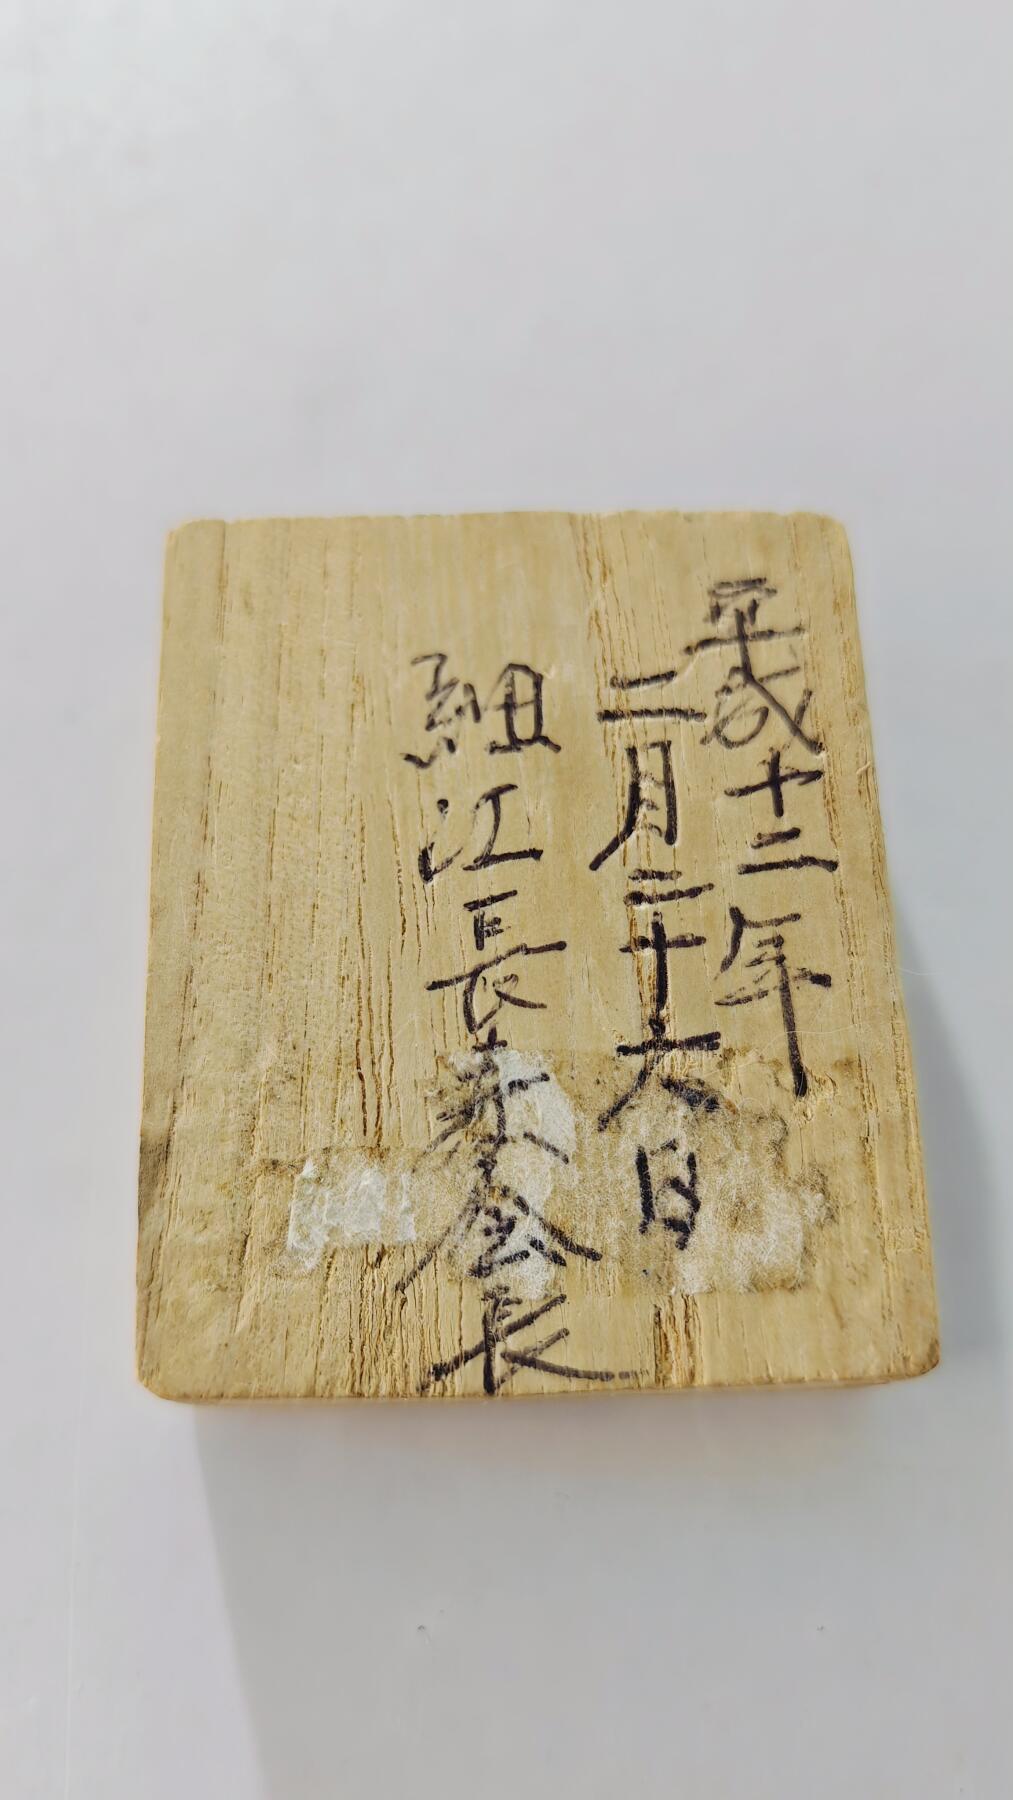 平成十二年
二月二十六日
細江長寿会長